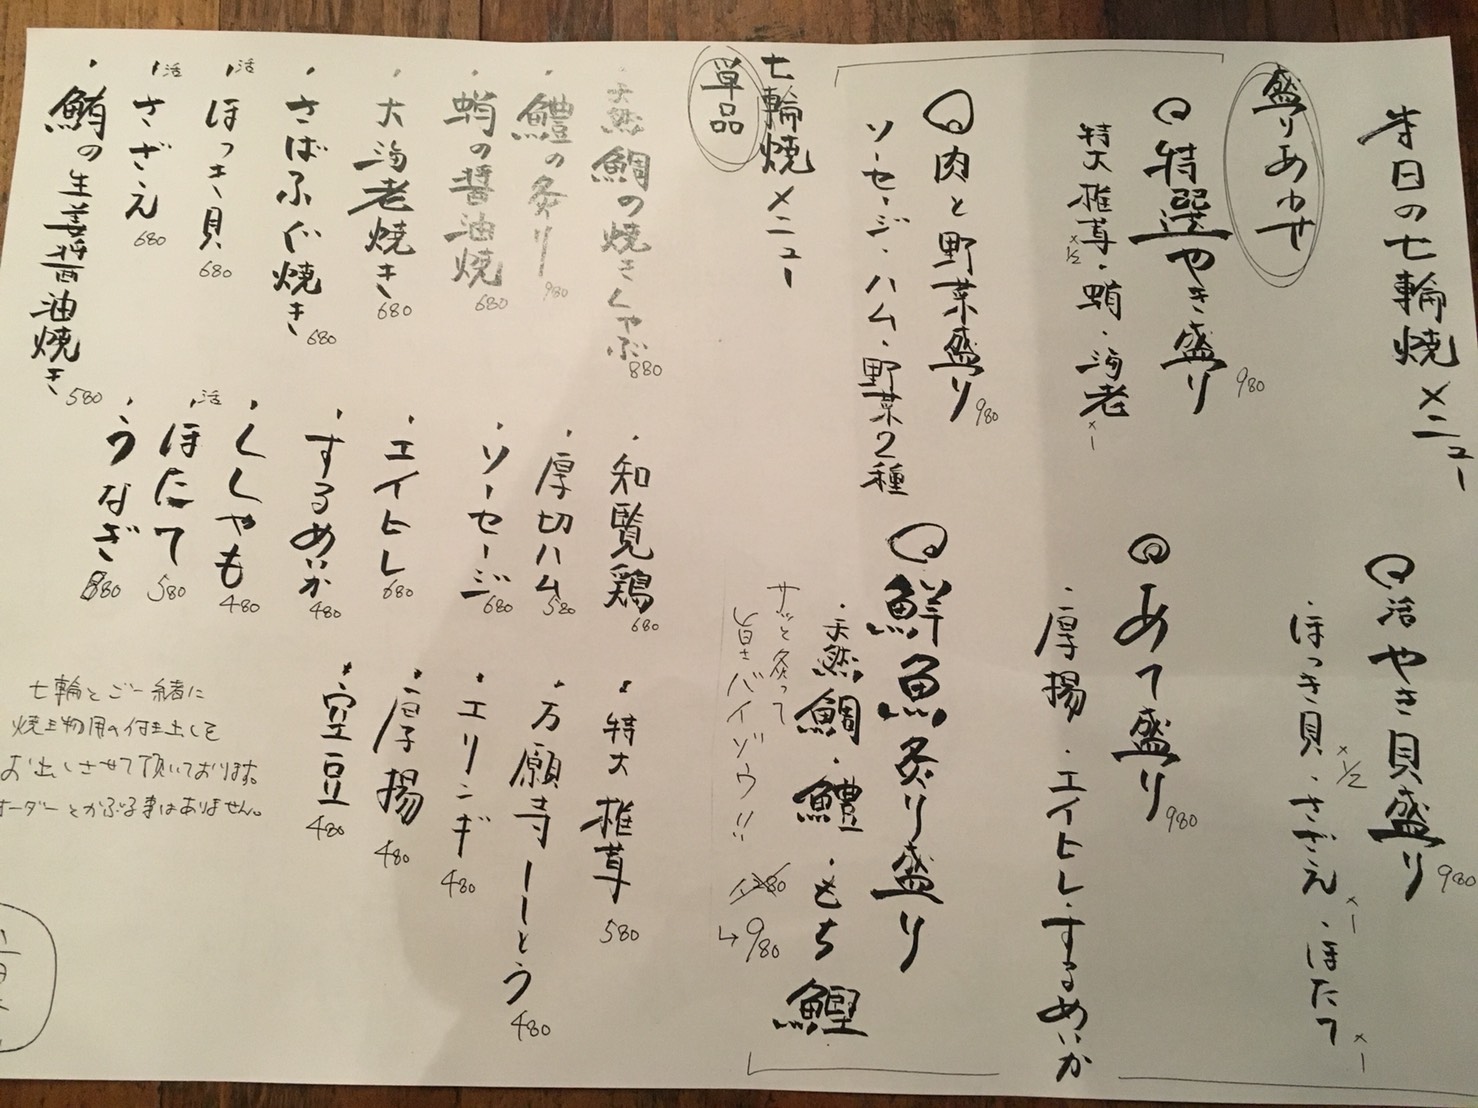 本日の七輪焼メニュー
盛りあわせ
特選やき盛り 980
特大椎茸×1/2・蛸・海老×1
肉と野菜盛り 980
ソーセージ・ハム・野菜2種
活やき貝盛り 980
ほっき貝×1/2・さざえ×1・ほたて×1
あて盛り 980
・厚揚・エイヒレ・するめいか
鮮魚炙り盛り
・天然鯛・鱧・もち鰹
サッと炙って
旨さバイゾウ!!
1280
→980
七輪焼メニュー
単品
・天然鯛の焼きしゃぶ 880
・鱧の炙り 980
・蛸の醤油焼 680
・大海老焼き 680
・さばふぐ焼き 680
・活ほっき貝 680
・活さざえ 680
・鮪の生姜醤油焼き 580
・知覧鶏 680
・厚切ハム 580
・ソーセージ 680
・エイヒレ 680
・するめいか 480
・ししゃも 480
・活ほたて 580
・うなぎ 880
・特大椎茸 580
・万願寺ししとう 480
・エリンギ 480
・厚揚 480
・空豆 480
七輪とご一緒に
焼き物用の付き出しを
お出しさせて頂いております。
オーダーとかぶる事はありません。